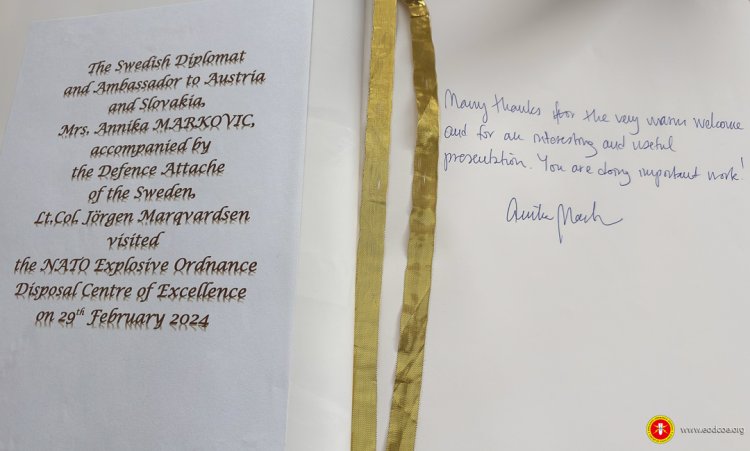 The Swedish Diplomat
and Ambassador to Austria
and Slovakia,
Mrs. Annika MARKOVIC,
accompanied by
the Defence Attache
of the Sweden,
Lt.Col. Jörgen Marqvardsen
visited
the NATO Explosive Ordnance
Disposal Centre of Excellence
on 29th February 2024
Many thanks for the very warm welcome
and for an interesting and useful
presentation. You are doing important work!
www.eodcoe.org